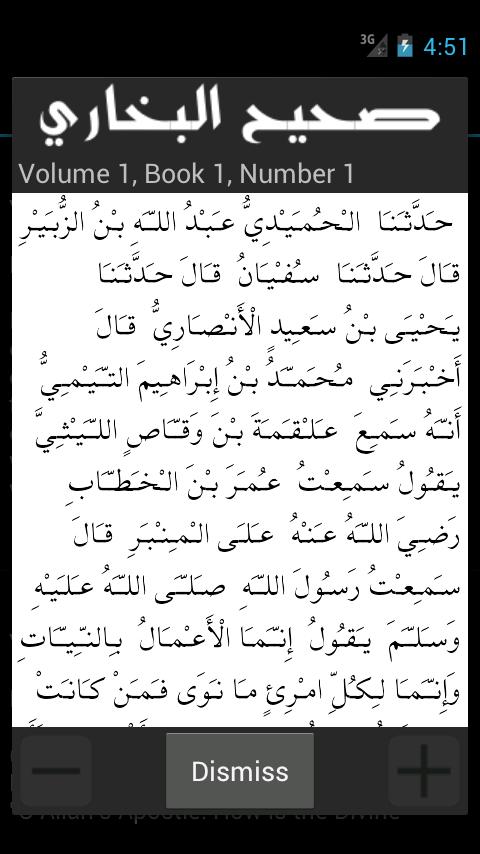 3G 4:51
صحيح البخاري
Volume 1, Book 1, Number 1
حَدَّثَنَا الْحُمَيْدِيُّ عَبْدُ اللَّهِ بْنُ الزُّبَيْرِ
قَالَ حَدَّثَنَا سُفْيَانُ قَالَ حَدَّثَنَا
يَحْيَى بْنُ سَعِيدٍ الْأَنْصَارِيُّ قَالَ
أَخْبَرَنِي مُحَمَّدُ بْنُ إِبْرَاهِيمَ التَّيْمِيُّ
أَنَّهُ سَمِعَ عَلْقَمَةَ بْنَ وَقَّاصٍ اللَّيْثِيَّ
يَقُولُ سَمِعْتُ عُمَرَ بْنَ الْخَطَّابِ
رَضِيَ اللَّهُ عَنْهُ عَلَى الْمِنْبَرِ قَالَ
سَمِعْتُ رَسُولَ اللَّهِ صَلَّى اللَّهُ عَلَيْهِ
وَسَلَّمَ يَقُولُ إِنَّمَا الْأَعْمَالُ بِالنِّيَّاتِ
وَإِنَّمَا لِكُلِّ امْرِئٍ مَا نَوَى فَمَنْ كَانَتْ
Dismiss